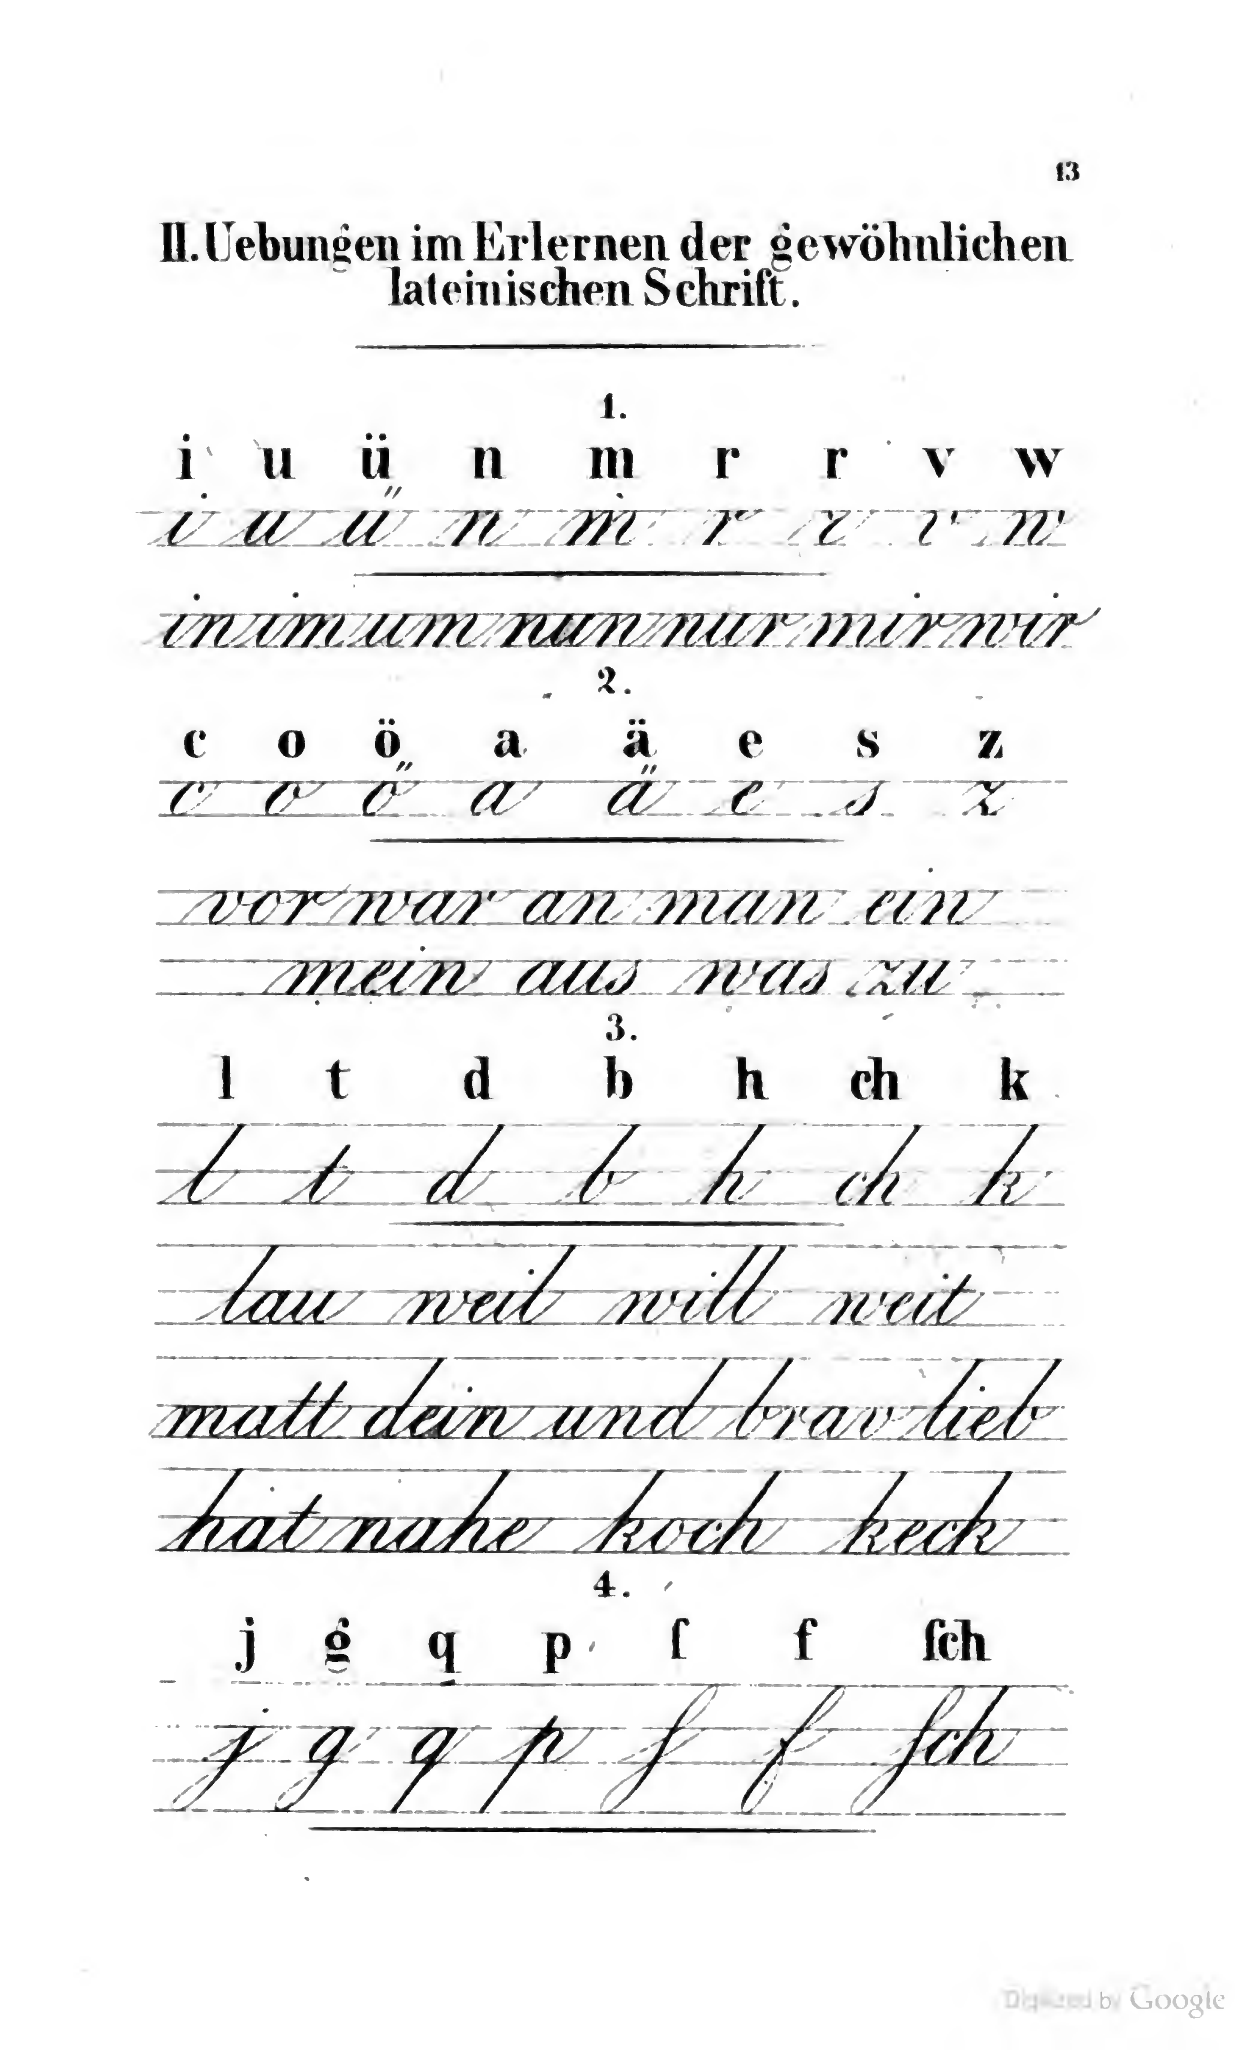 13
II. Uebungen im Erlernen der gewöhnlichen
lateinischen Schrift.
1.
i u ü n m r r v w
i u ü n m r r v w
in im um nun nur mir wir
2.
c o ö a ä e s z
c o ö a ä e s z
vor war an man ein
mein aus was zu
3.
l t d b h ch k
l t d b h ch k
lau weil will weit
matt dein und brav lieb
hat nahe koch keck
4.
j g q p ſ f ſch
j g q p ſ f ſch
Digitized by Google